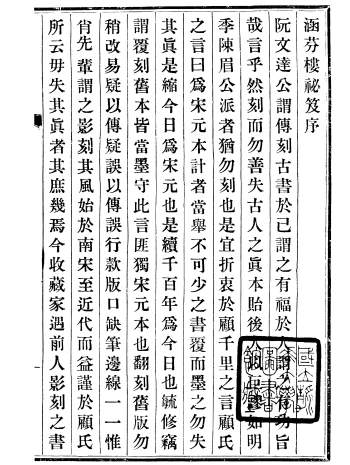 涵芬樓祕笈序
阮文達公謂傳刻古書於已謂之有福於人謂之功旨
哉言乎然刻而勿善失古人之眞本貽後如明
季陳眉公派者猶勿刻也是宜折衷於顧千里之言顧氏
之言曰爲宋元本計者當舉不可少之書覆而墨之勿失
其眞是縮今日爲宋元也是續千百年爲今日也毓修竊
謂覆刻舊本皆當墨守此言匪獨宋元本也翻刻舊版勿
稍改易疑以傳疑誤以傳誤行款版口缺筆邊線一一惟
肖先輩謂之影刻其風始於南宋至近代而益謹於顧氏
所云毋失其眞者其庶幾焉今收藏家遇前人影刻之書